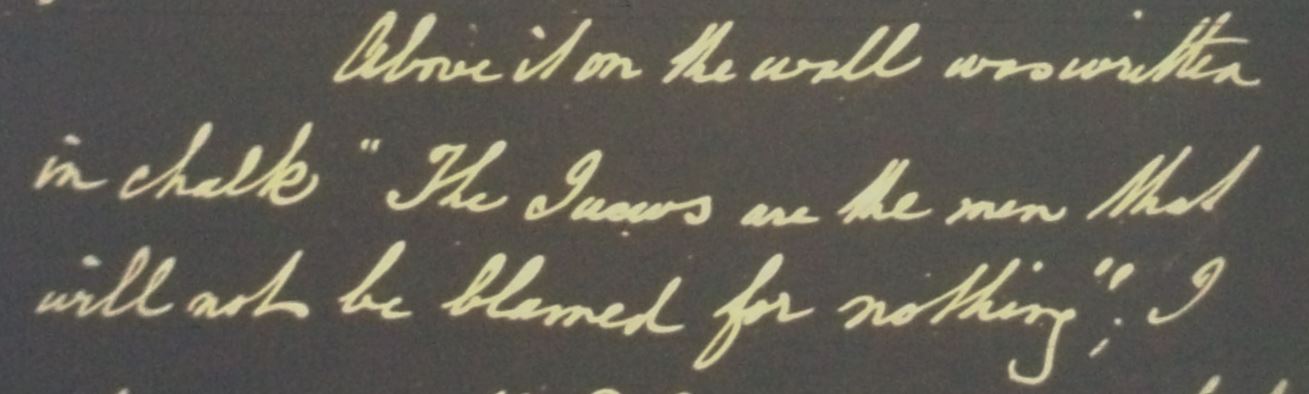 Above it on the wall was written
in chalk "The Juews are the men that
will not be blamed for nothing"; I